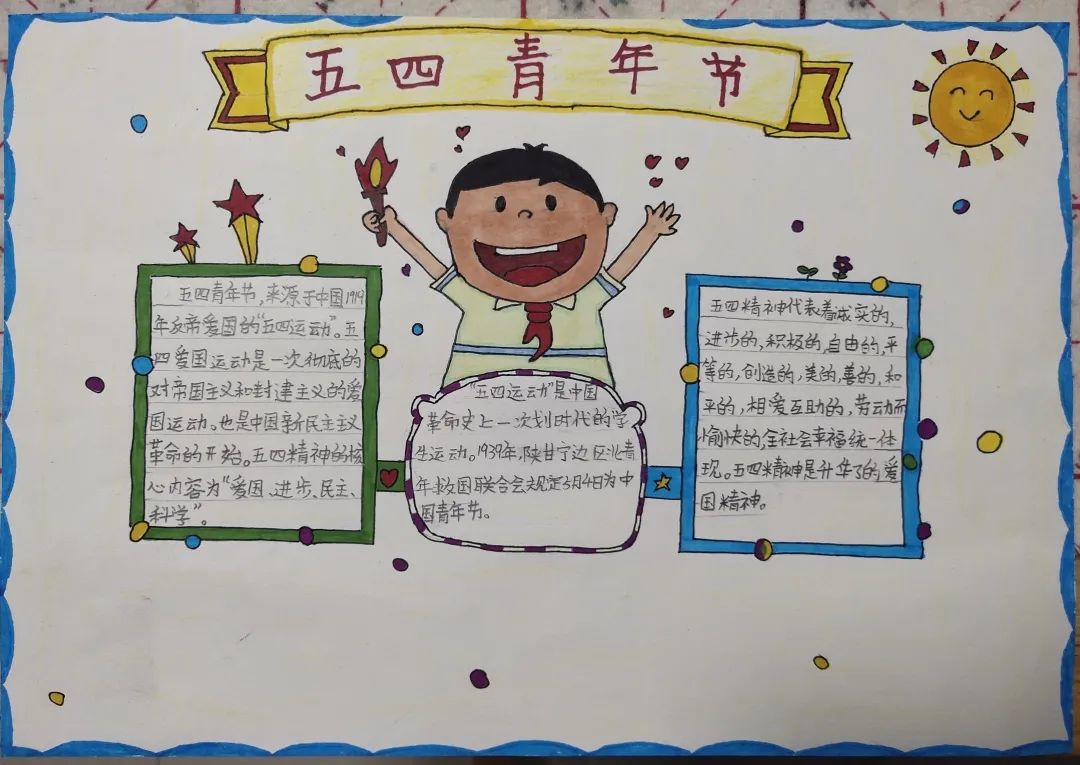 五四青年节
五四青年节,来源于中国1919
年反帝爱国的“五四运动”。五
四爱国运动是一次彻底的
对帝国主义和封建主义的爱
国运动。也是中国新民主主义
革命的开始。五四精神的核
心内容为“爱国、进步、民主、
科学”。
“五四运动”是中国
革命史上一次划时代的学
生运动。1939年,陕甘宁边区西北青
年救国联合会规定5月4日为中
国青年节。
五四精神代表着诚实的,
进步的,积极的,自由的,平
等的,创造的,美的,善的,和
平的,相爱互助的,劳动而
愉快的,全社会幸福统一体
现。五四精神是升华了的爱
国精神。